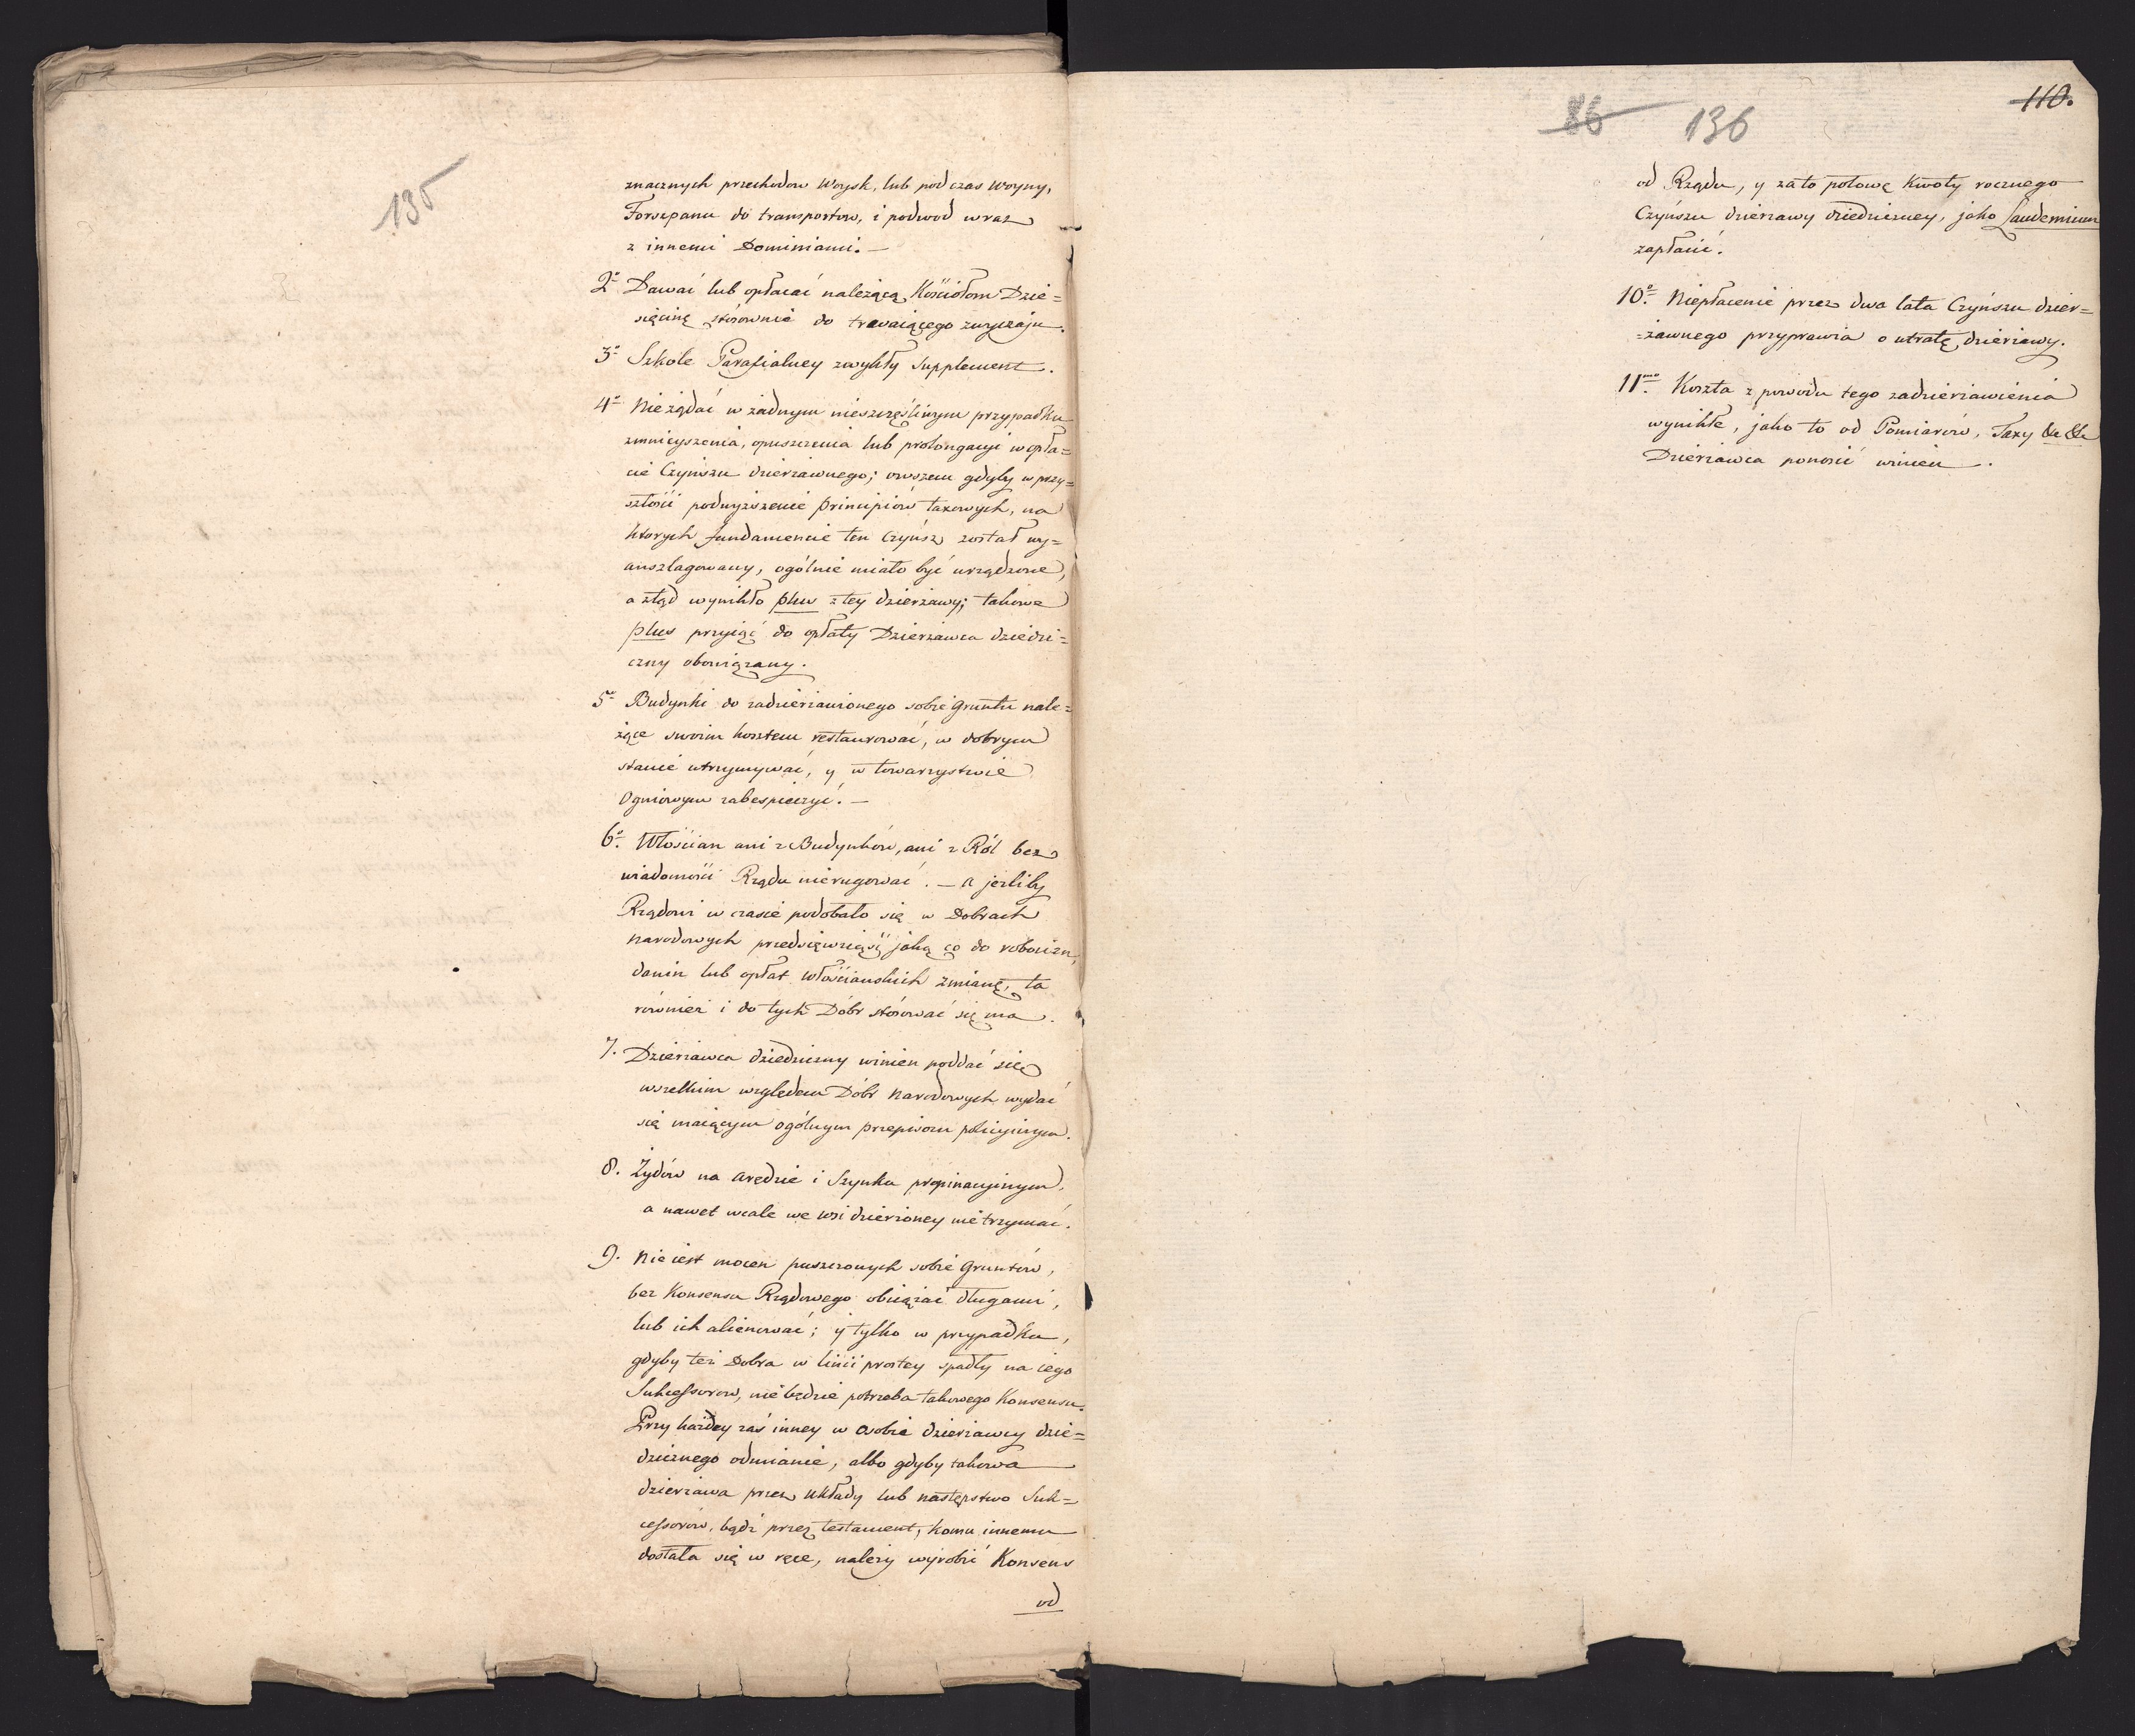 135
znacznych przechodow Woysk, lub pod czas Woyny,
Forszpanu do transportow, i podwod wraz
z innemi Dominiami. —
2º Dawać lub opłacać należącą Kościołom Dzie=
sięcinę stósownie do trwaiącego zwyczaju.
3º Szkole Parafialney zwykły Supplement.
4º Nie żądać w żadnym nieszczęśliwym przypadku
zmnieyszenia, opuszczenia lub prolongacyi w opła=
cie Czynszu dzierzawnego; owszem gdyby w przy=
szłości podwyższenie Principiow taxowych, na
ktorych fundamencie ten Czynsz został wy=
anszlagowany, ogólnie miało być urządzone,
a ztąd wynikło plus z tey dzierzawy; takowe
plus przyiąć do opłaty Dzierzawca dziedzi=
czny obowiązany.
5º Budynki do zadzierzawionego sobie gruntu nale=
żące swoim kosztem restaurować, w dobrym
stanie utrzymywać, y w towarzystwie
Ogniowym zabespieczyć. —
6º. Włościan ani z Budynków, ani z Ról bez
wiadomości Rządu nierugować. — A jeśliby
Rządowi w czasie podobało się w Dobrach
Narodowych przedsięwziąść jaką co do robocizn,
danin lub opłat włościanskich zmianę, ta
również i do tych Dóbr stósować się ma.
7. Dzierzawca dziedziczny winien poddać się
wszelkim względem Dóbr Narodowych wydać
się maiącym ogólnym przepisom policyinym.
8. Żydów na arędzie i Szynku propinacyinym,
a nawet wcale we wsi dzierżoney nie trzymać.
9. Nie iest mocen puszczonych sobie Gruntów,
bez Konsensu Rządowego obciążać długami,
lub ich alienować; y tylko w przypadku,
gdyby też Dobra w linii prostey spadły na iego
Sukcessorow, nie będzie potrzeba takowego Konsensu.
Przy każdey zaś inney w osobie dzierzawcy dzie=
dzicznego odmianie, albo gdyby takowa
dzierzawa przez układy lub następstwo Suk=
cessorów, bądź przez testament, komu innemu
dostała się w ręce, należy wyrobić Konsens
od
86 136
110.
od Rządu, y za to połowę Kwoty rocznego
Czynszu dzierzawy dziedziczney, jako Laudemium
zapłacić.
10º. Niepłacenie przez dwa lata Czynszu dzier=
=żawnego przyprawia o utratę dzierzawy.
11mo. Koszta z powodu tego zadzierzawienia
wynikłe, jako to od Pomiarów, Taxy &c &c
Dzierzawca ponosić winien.